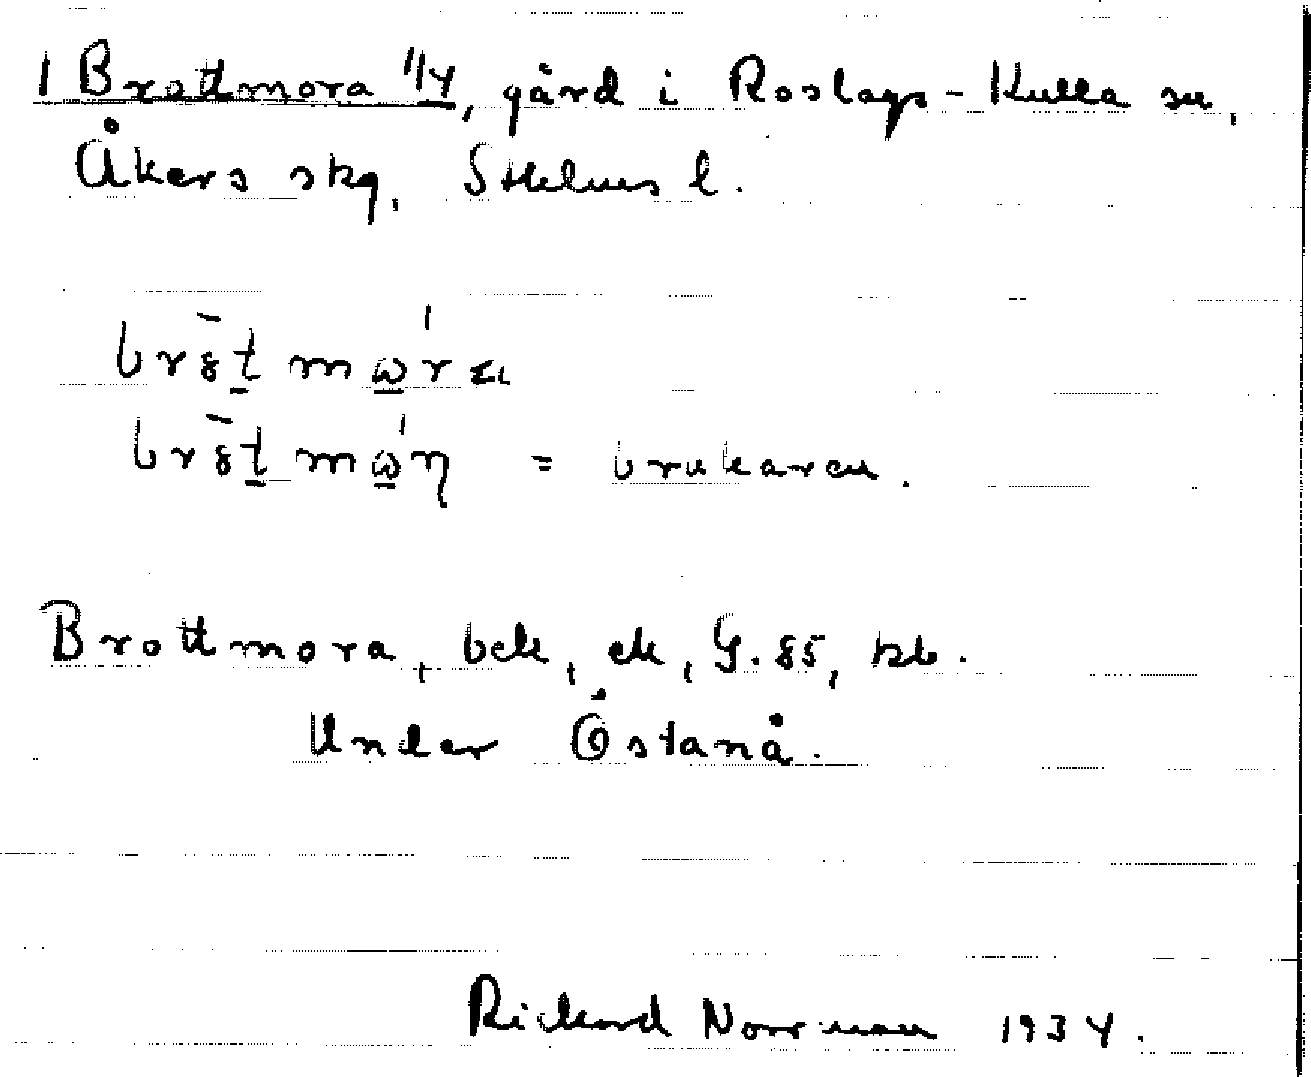 1 Brottmora 1/4, gård i Roslags-Kulla sn,
Åkers skg, Sthlms l.
= brukaren.
Brottmora, bck, ek, G. 85, kb.
Under Östanå.
Rickard Norrman 1934.